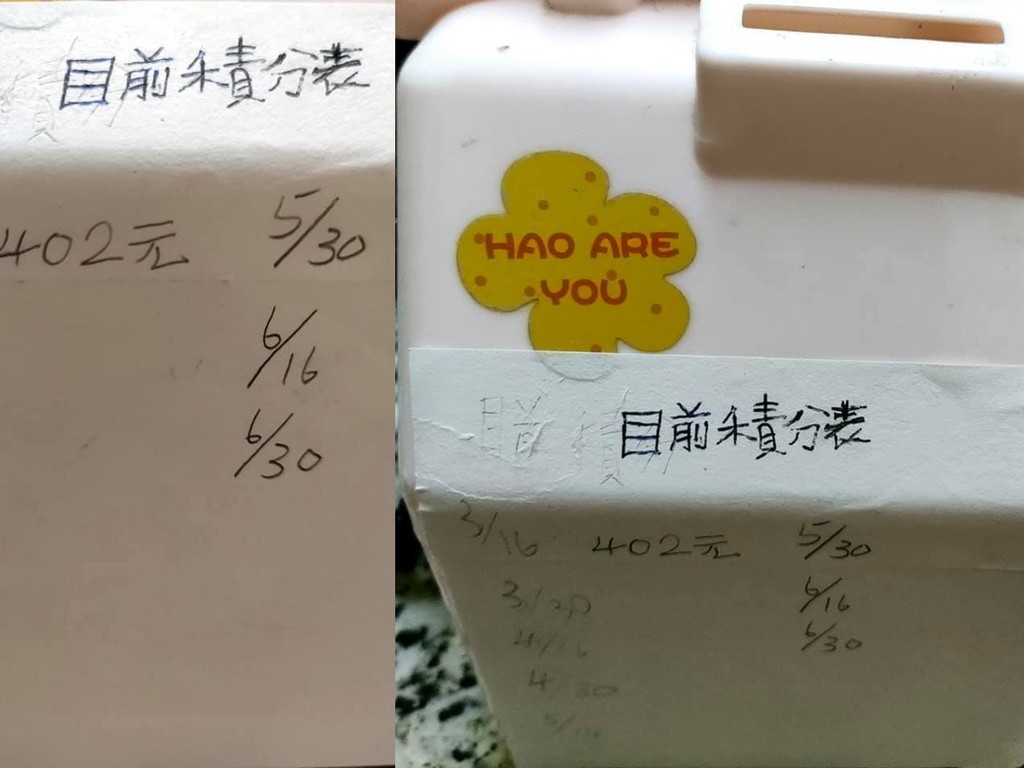 目前積分裝
402元 5/30
6/16
6/30
HAO ARE
YOU
目前積分裝
3/16 402元 5/30
6/16
4/16 6/30
4/30